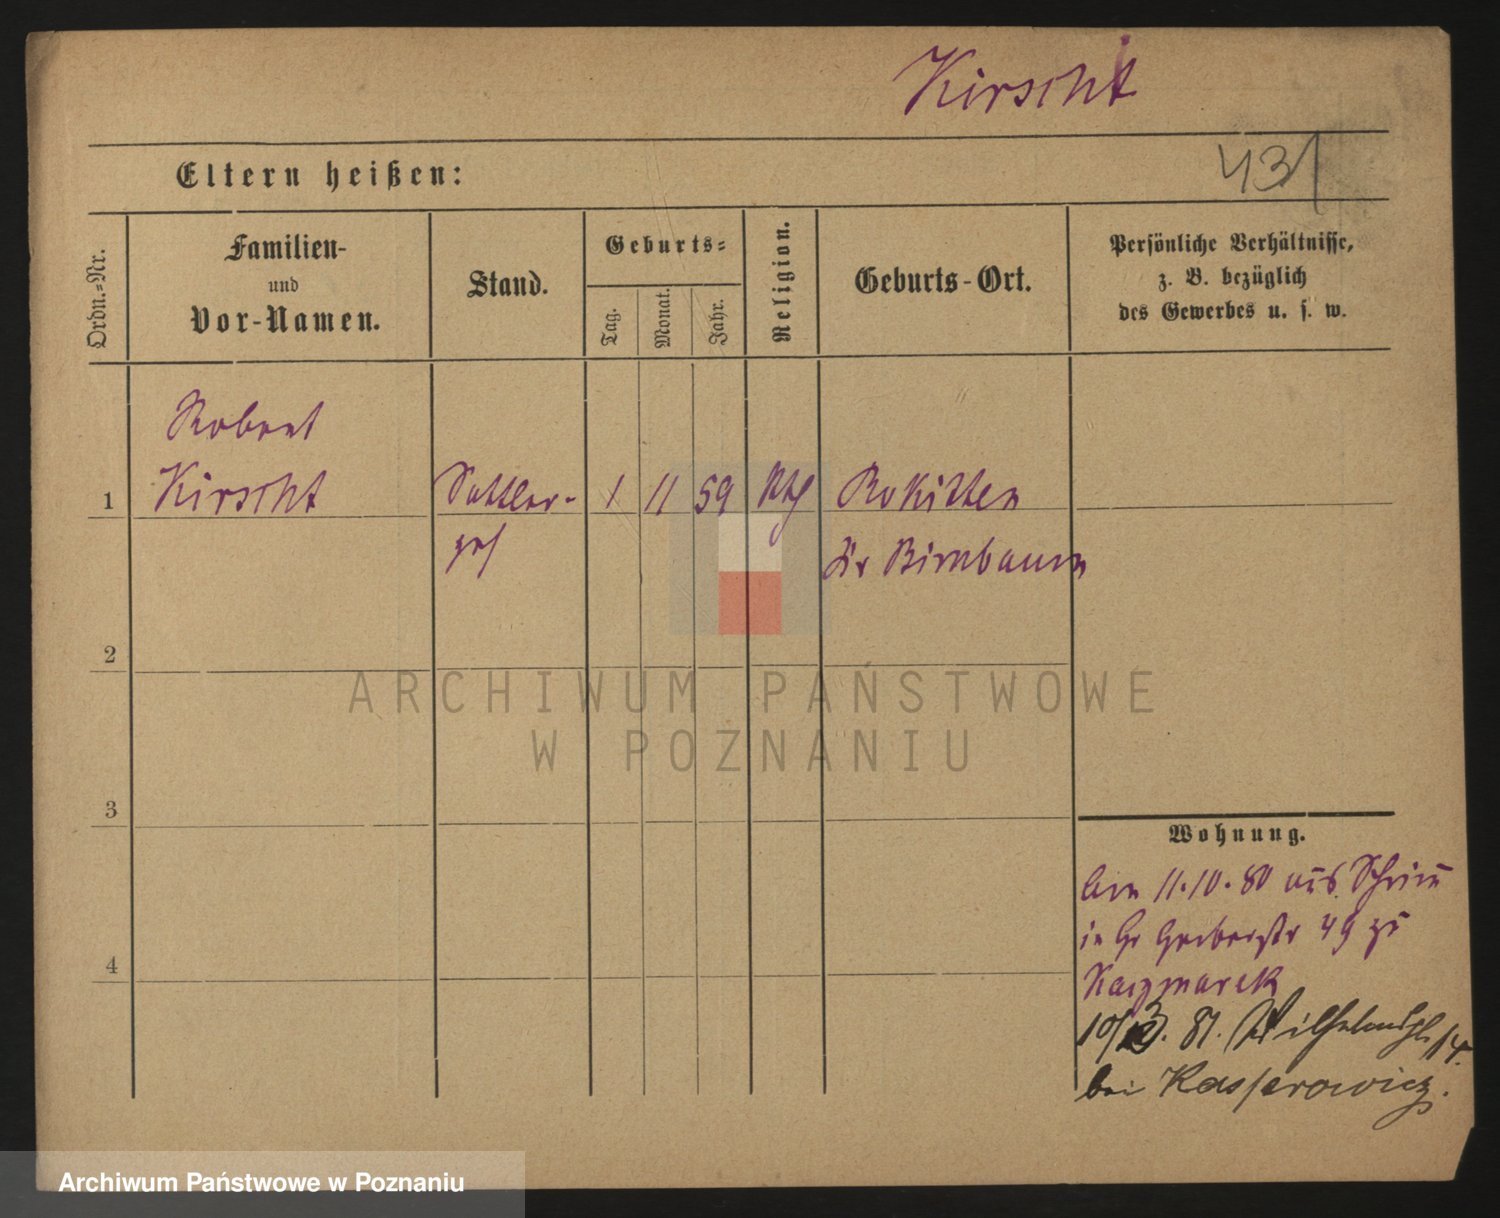 Kirscht
431
Eltern heißen:
Ordn.-Nr.
Familien-
und
Vor-Namen.
Stand.
Geburts-
Tag.
Monat.
Jahr.
Religion.
Geburts-Ort.
Persönliche Verhältnisse,
z. B. bezüglich
des Gewerbes u. s. w.
Robert
1 Kirscht Sattler- 1 11 59 kth Rokitten
ges Kr Birnbaum
2
ARCHIWUM PAŃSTWOWE
W POZNANIU
3
Wohnung.
Am 11.10.80 aus Schrim
in Gr Gerberstr 49 zu
4
Kaczmarek
10/3. 81. Wilhelmspl. 14.
bei Kasperowicz.
Archiwum Państwowe w Poznaniu